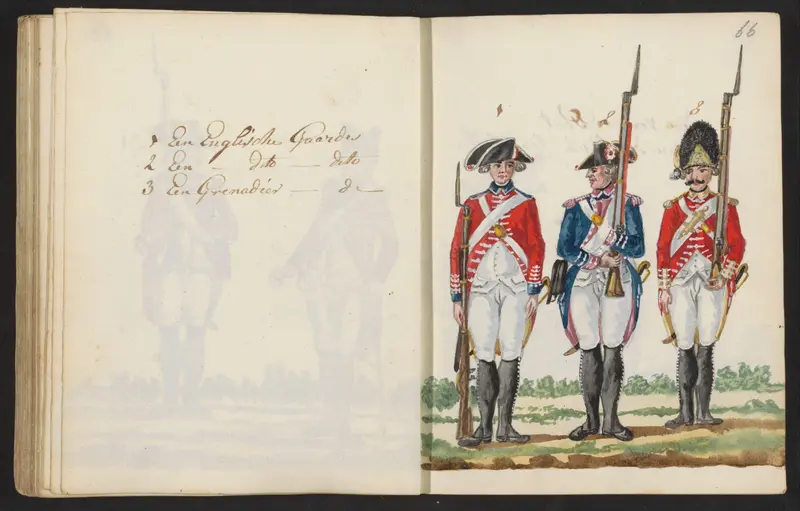 1 Een Englische Gaardes
2 Een — dito — dito
3 Een Grenadier — do —
66
1
2
3